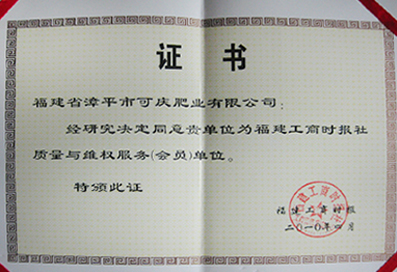 证书
福建省漳平市可庆肥业有限公司：
经研究决定同意贵单位为福建工商时报社
质量与维权服务(会员)单位。
特颁此证
福建工商时报
二〇一〇年四月